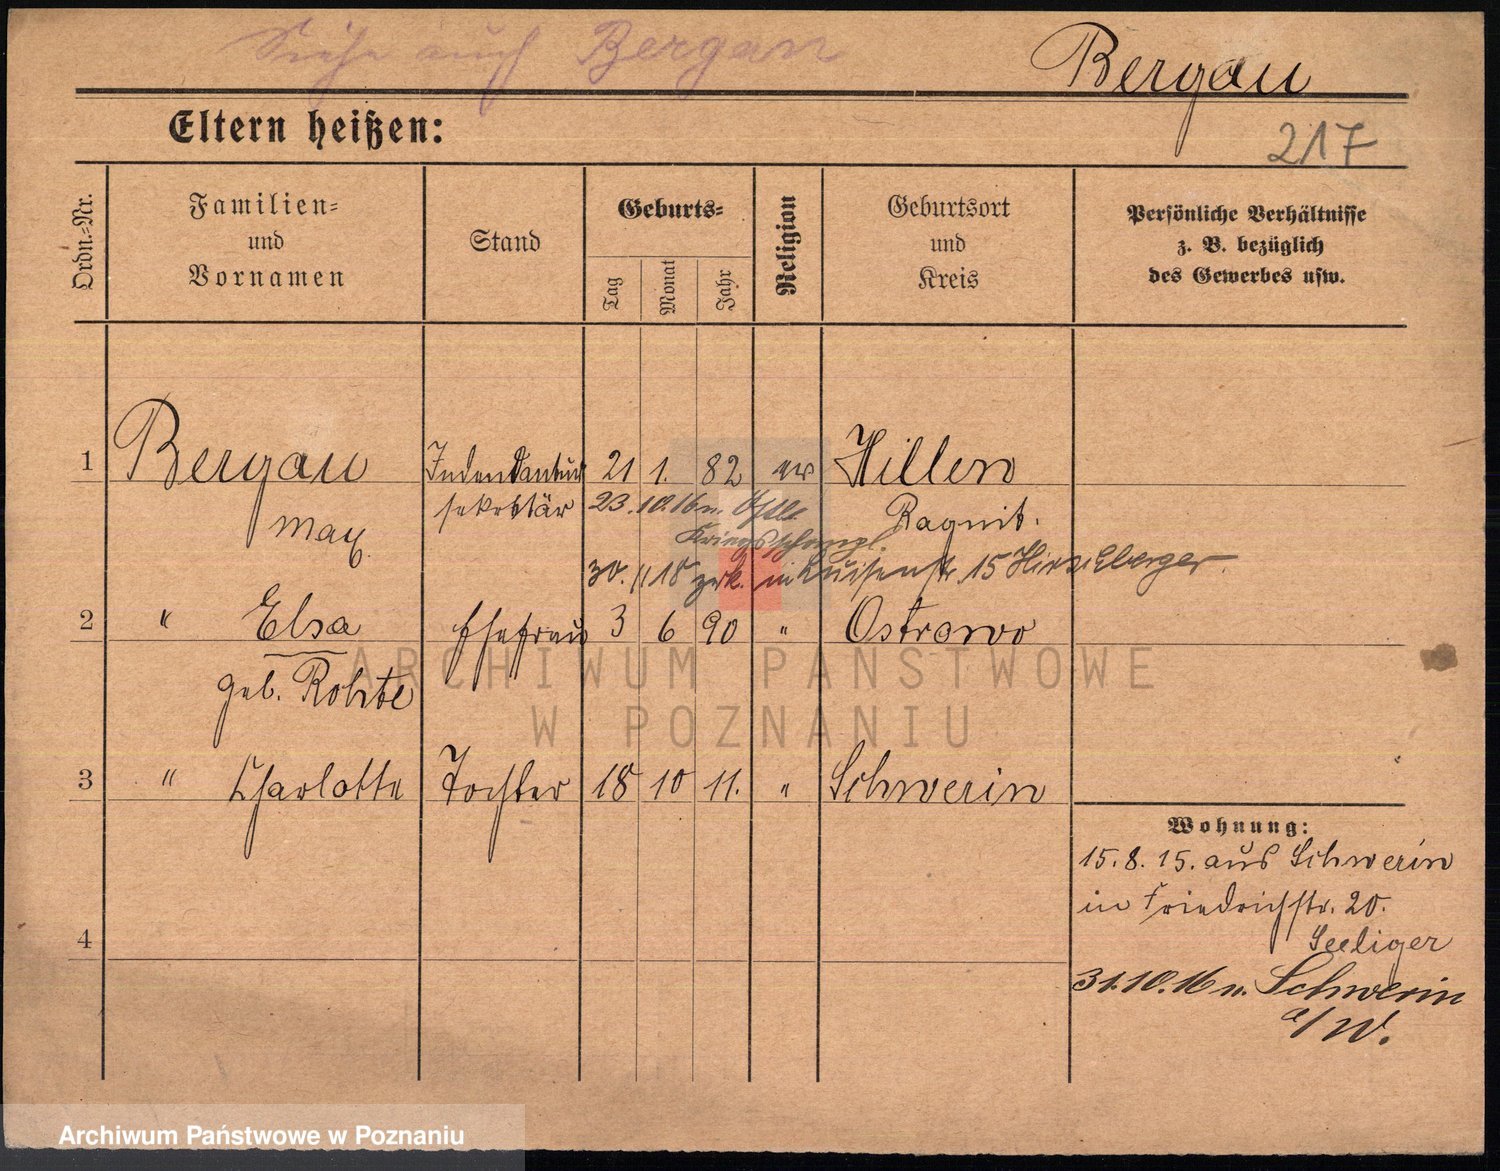 Siehe auch Bergan
Bergau
Eltern heißen:
217
Ordn.-Nr.
Familien-
und
Vornamen
Stand
Geburts-
Tag
Monat
Jahr
Religion
Geburtsort
und
Kreis
Persönliche Verhältnisse
z. B. bezüglich
des Gewerbes usw.
1 Bergau Indendantur 21 1. 82 ev Hillen
sekretär 23.10.16 n.
Ragnit.
Max
30. 11 18 zrk. in Luisenstr. 15 Hirschberger.
2 " Elsa Ehefrau 3 6 90 " Ostrowo
geb. Rohte
3 " Charlotte Tochter 18 10 11. " Schwerin
Wohnung:
15.8.15. aus Schwerin
in Friedrichstr. 20.
Seeliger
4
31.10.16 n. Schwerin
a/W.
ARCHIWUM PAŃSTWOWE
W POZNANIU
Archiwum Państwowe w Poznaniu